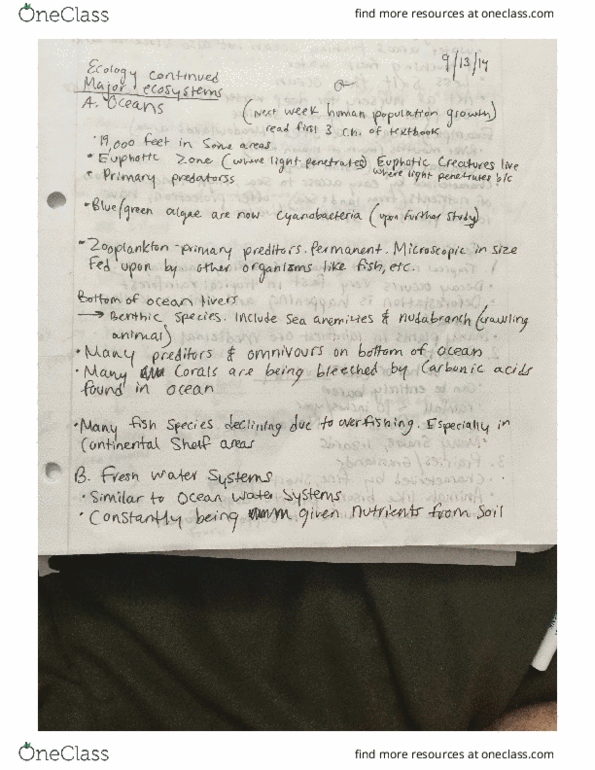 OneClass
find more resources at oneclass.com
9/13/14
Ecology continued
Major ecosystems
A. Oceans
(Next week human population growth)
read first 3 ch. of textbook
• 19,000 feet in some areas
• Euphotic Zone (where light penetrates) Euphotic Creatures live
where light penetrates b/c
• Primary predatorss
• Blue/green algae are now Cyanobacteria (upon further study)
• Zooplankton - primary preditors. Permanent. Microscopic in size
Fed upon by other organisms like fish, etc.
Bottom of ocean livers
→ Benthic species. Include Sea anemizies & nudabranch (crawling
animal)
• Many preditors & omnivours on bottom of ocean
• Many Corals are being bleeched by Carbonic acids
found in ocean
• Many fish species declining due to overfishing. Especially in
Continental Shelf areas
B. Fresh water Systems
• Similar to Ocean water systems
• Constantly being given nutrients from soil
OneClass
find more resources at oneclass.com